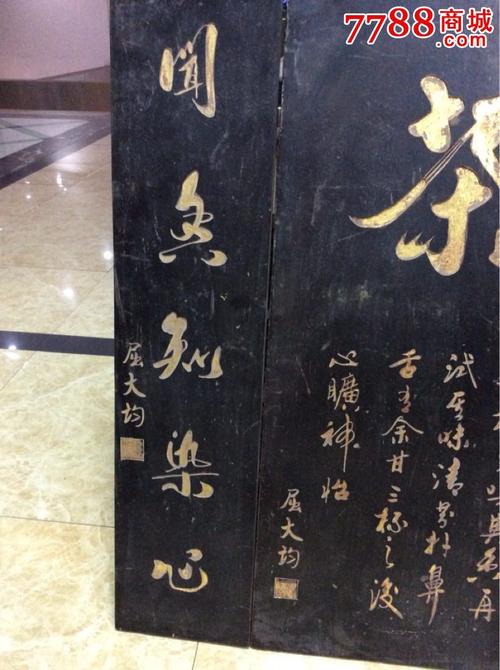 7788商城
.com
其香再
试其味清芬扑鼻
舌有余甘三杯之後
心曠神怡
屈大均
聞香知染心
屈大均